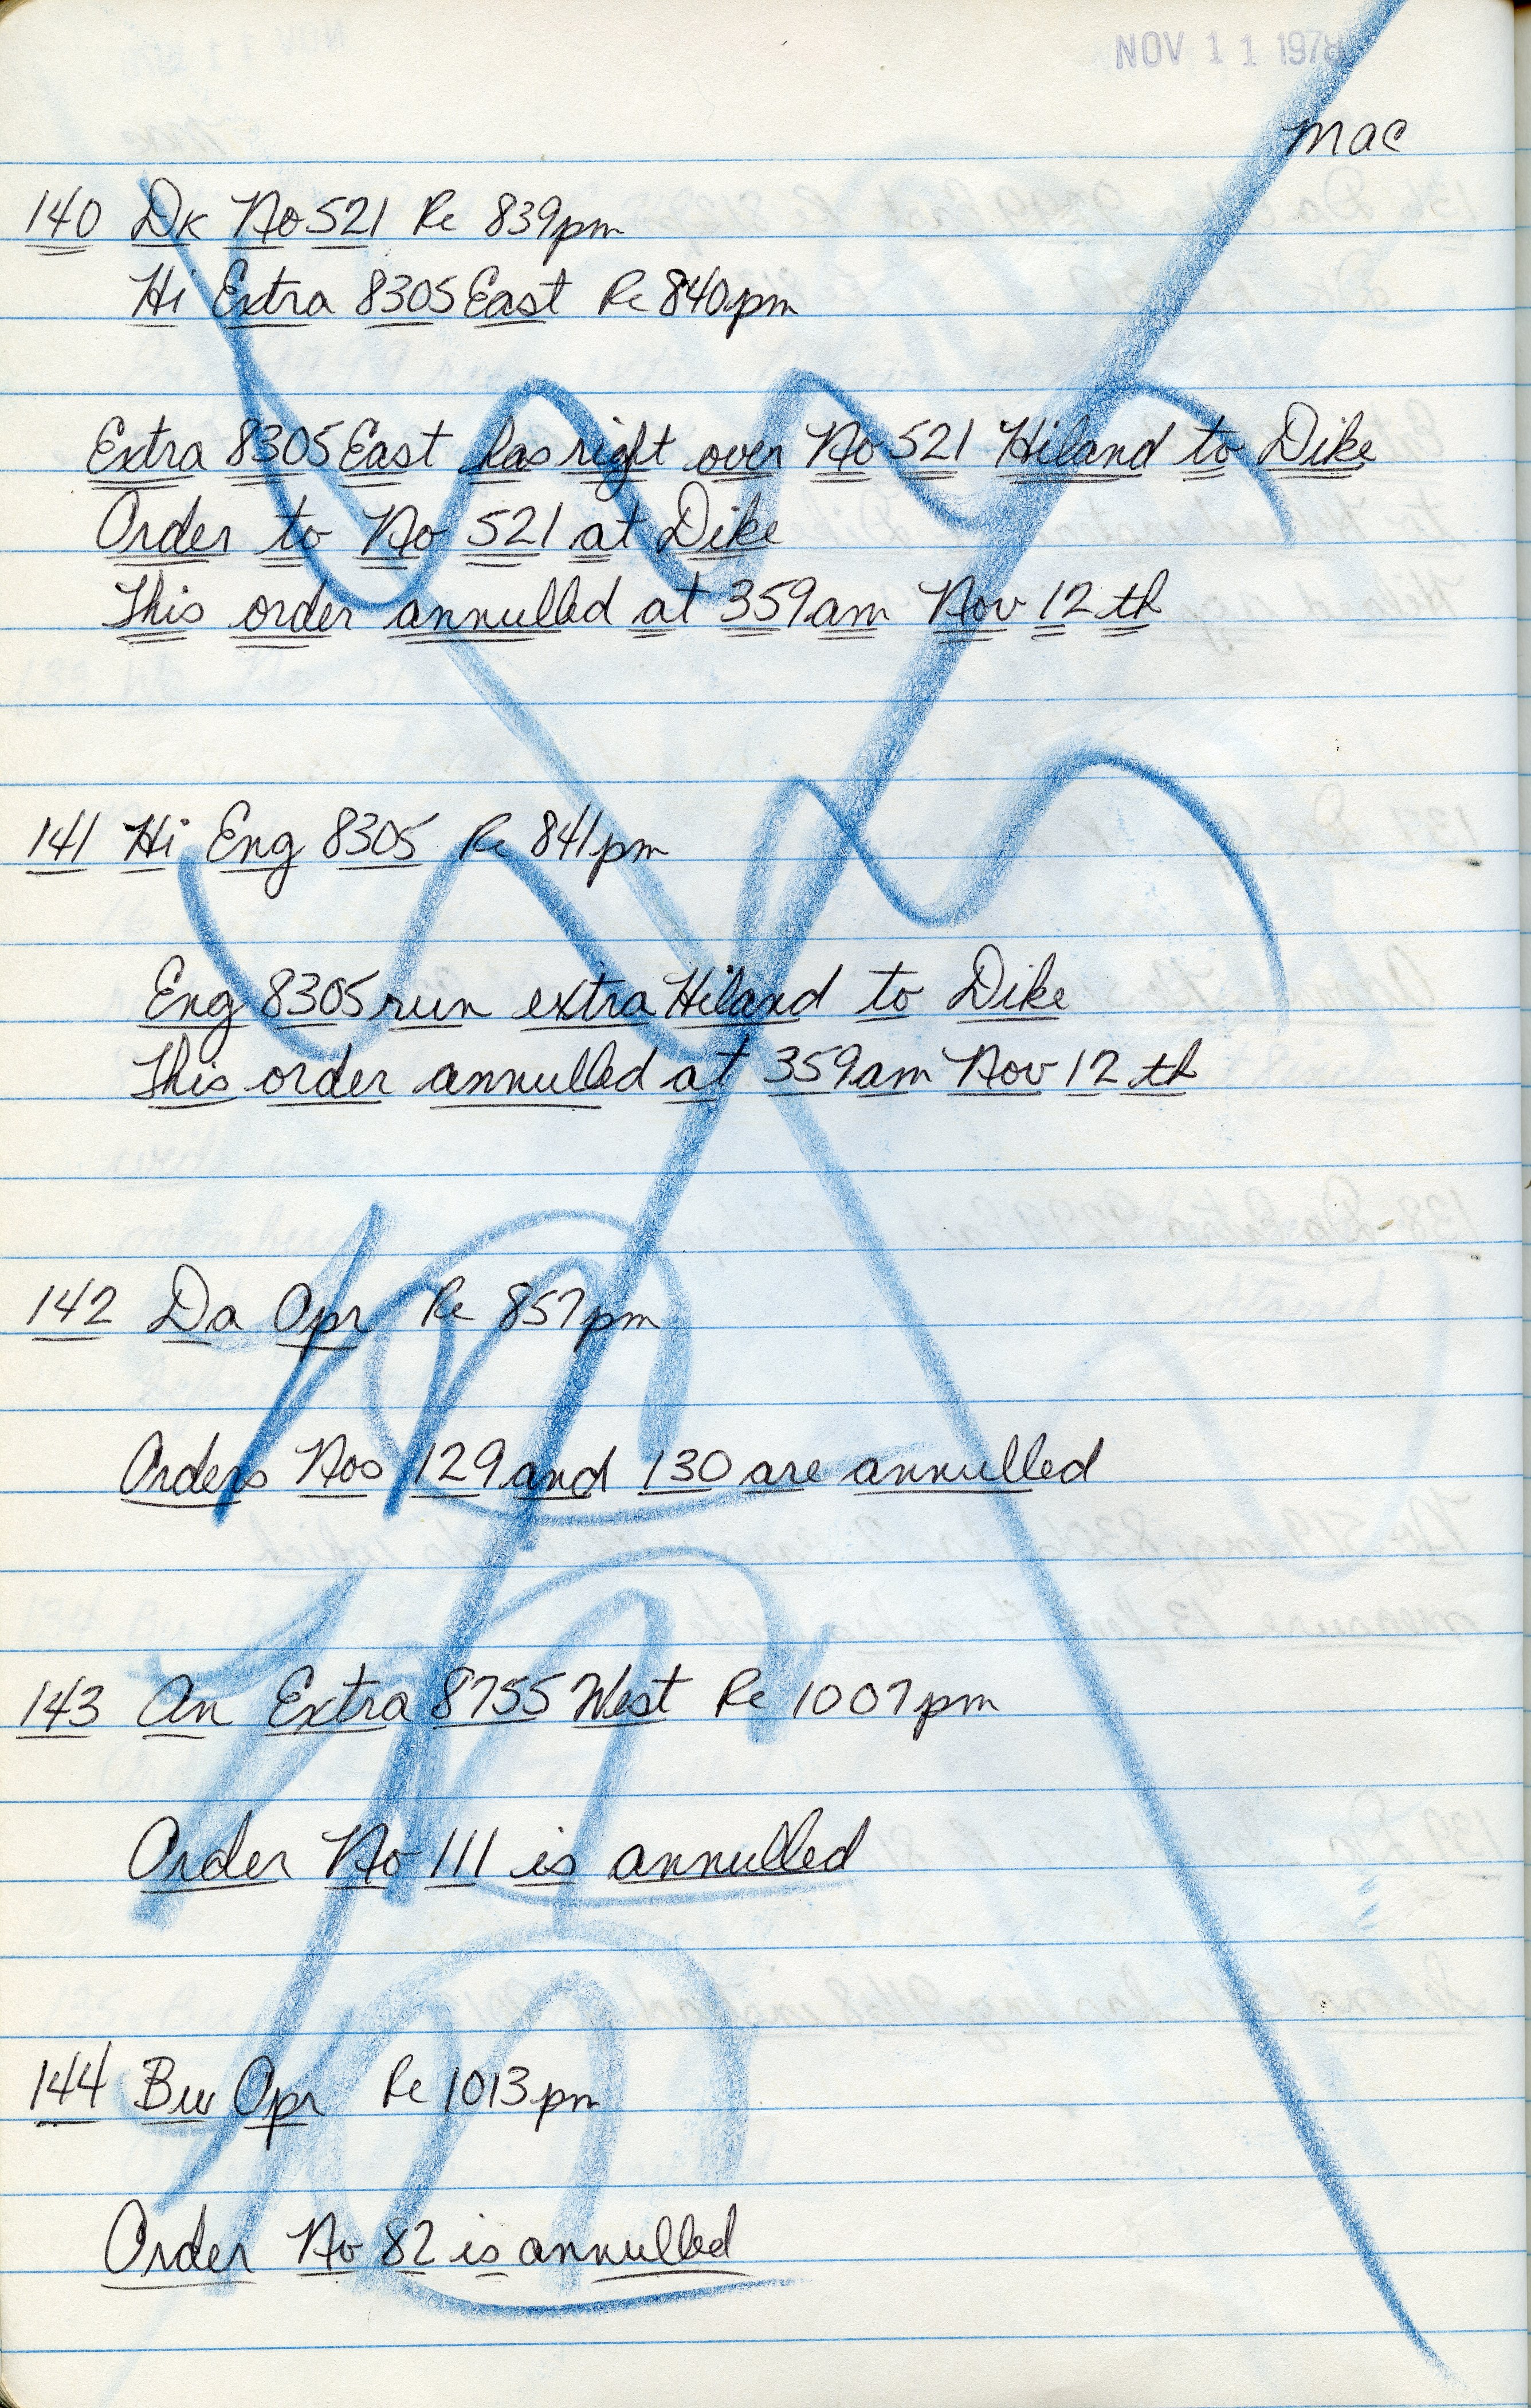 NOV 11 1978
mac
140 Dk No 521 Re 839pm
Hi Extra 8305 East Re 840pm
Extra 8305 East has right over No 521 Hiland to Dike
Order to No 521 at Dike
This order annulled at 359am Nov 12 th
141 Hi Eng 8305 Re 841pm
Eng 8305 run extra Hiland to Dike
This order annulled at 359am Nov 12 th
142 Da Opr Re 857pm
Orders Nos 129 and 130 are annulled
143 An Extra 8755 West Re 1007pm
Order No 111 is annulled
144 Bw Opr Re 1013pm
Order No 82 is annulled